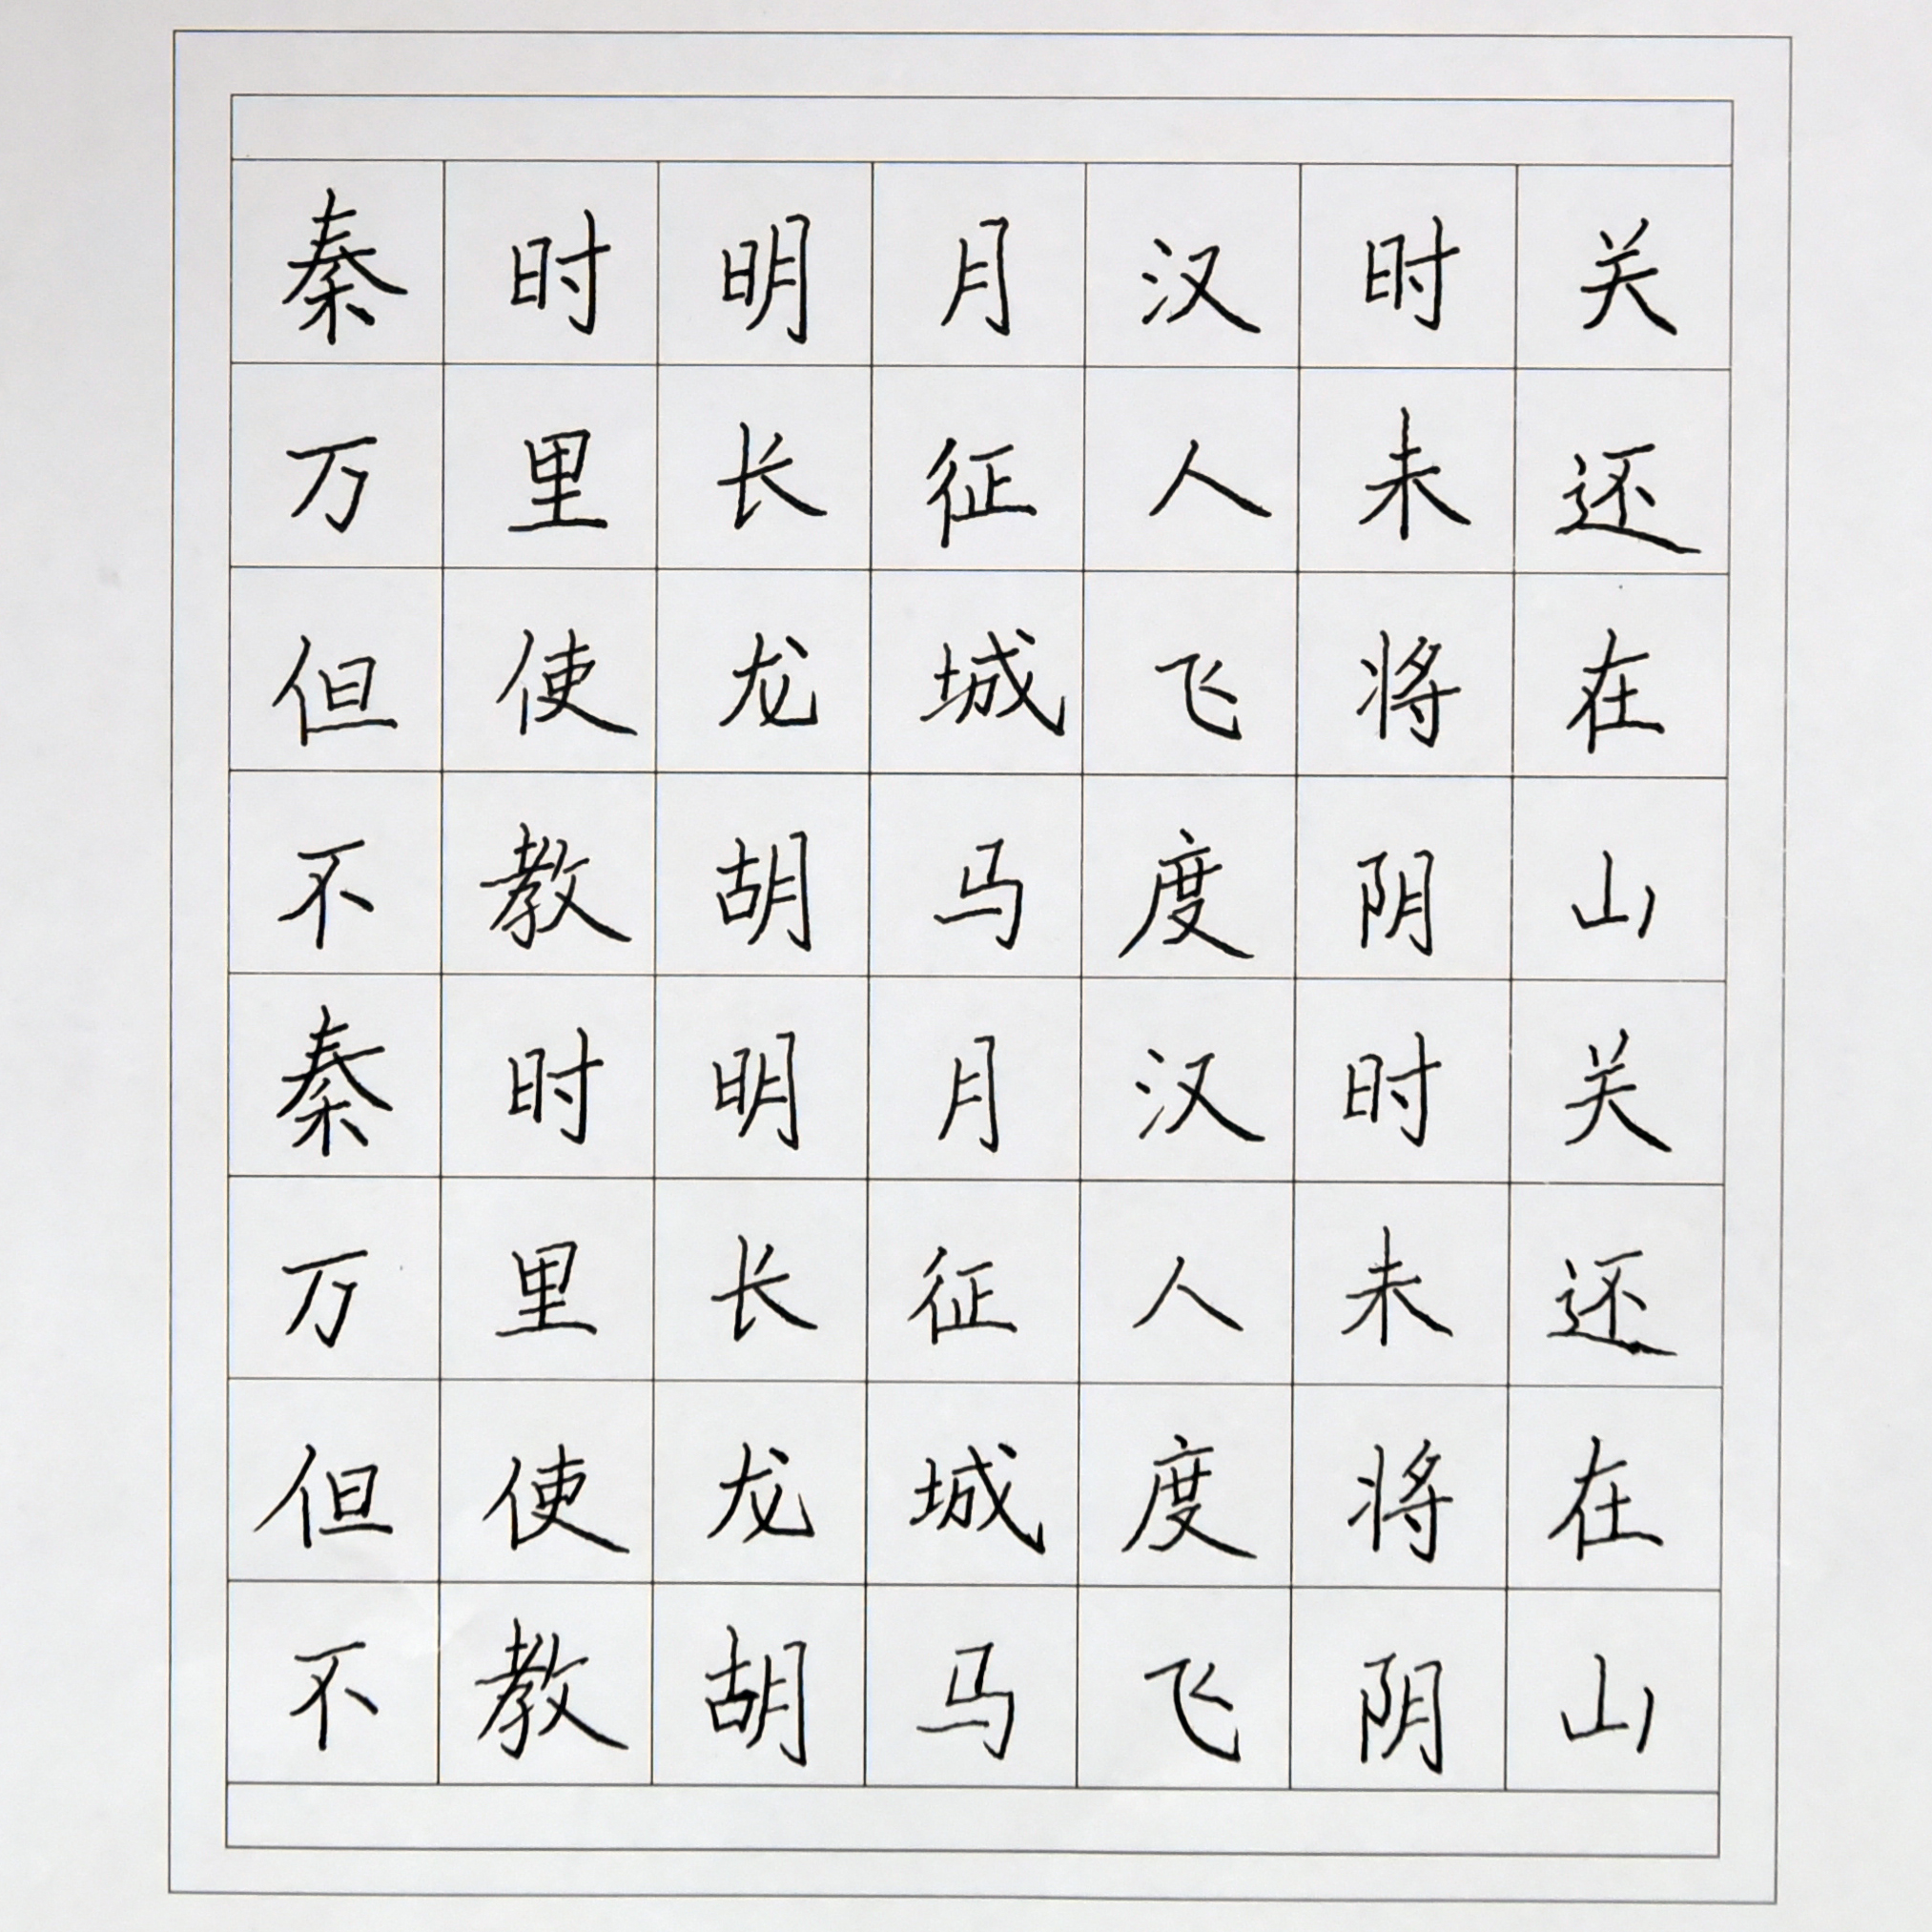 秦时明月汉时关
万里长征人未还
但使龙城飞将在
不教胡马度阴山
秦时明月汉时关
万里长征人未还
但使龙城度将在
不教胡马飞阴山